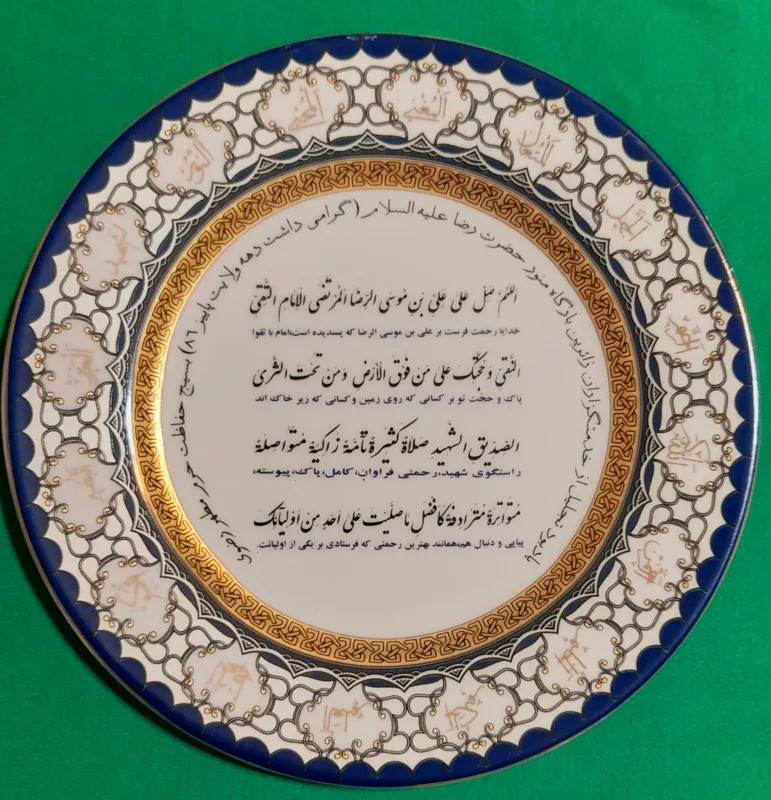 یادبود تجلیل از خدمتگزاران زائرین بارگاه منور حضرت رضا علیه السلام (گرامی داشت دهه ولایت پاییز ۸۶) بسیج حفاظت حرم مطهر رضوی
اللهم صل علی علی بن موسی الرضا المرتضی الامام التقی
خدایا رحمت فرست بر علی بن موسی الرضا که پسندیده است،امام با تقوا
النقی و حجتک علی من فوق الأرض و من تحت الثری
پاک و حجّت تو بر کسانی که روی زمین و کسانی که زیر خاک اند
الصدیق الشهید صلاة کثیرة تامة زاکیة متواصلة
راستگوی شهید،رحمتی فراوان، کامل، پاک، پیوسته،
متواترة مترادفة کافضل ما صلیت علی احد من اولیائک
پیاپی و دنبال هم،همانند بهترین رحمتی که فرستادی بر یکی از اولیائت
المغنی
المتعال
النور